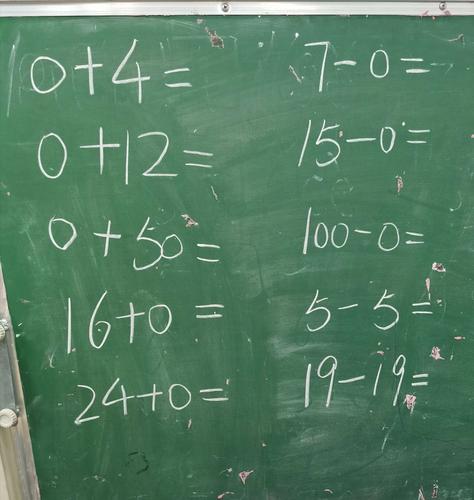 0+4=
0+12=
0+50=
16+0=
24+0=
7-0=
15-0=
100-0=
5-5=
19-19=